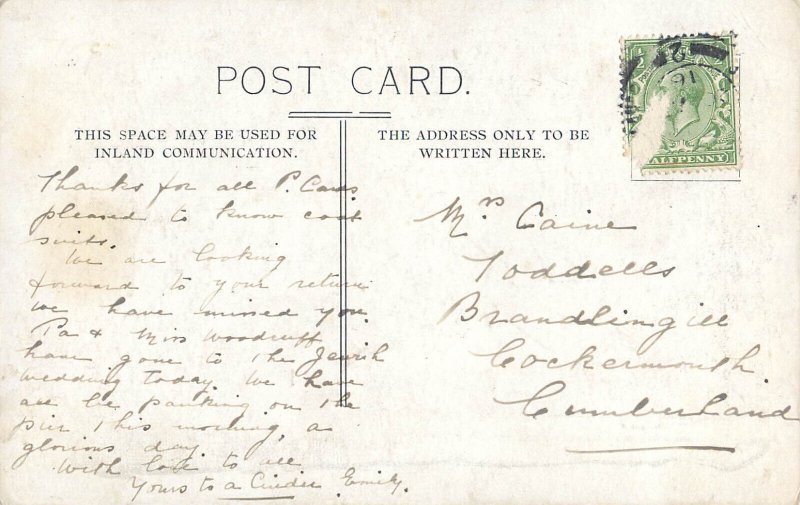 POST CARD.
THIS SPACE MAY BE USED FOR
INLAND COMMUNICATION.
THE ADDRESS ONLY TO BE
WRITTEN HERE.
HALFPENNY
Thanks for all P. Cards
pleased to know coat
suits.
We are looking
forward to your return
We have missed you.
Pa & Miss Woodruff
have gone to the Jewish
wedding today. We have
all been on the
pier this morning, a
glorious day.
With love to all
Yours to a Cinder Emily.
Mrs Caine
Toddells
Brandlingill
Cockermouth
Cumberland